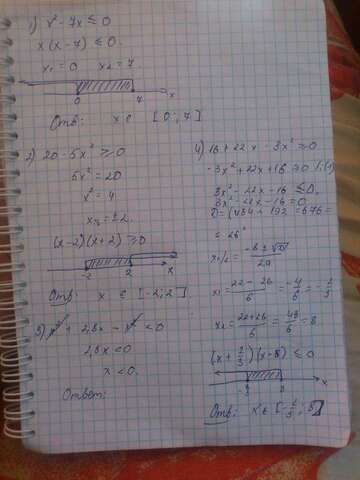 1) x² - 7x ≤ 0
x(x - 7) ≤ 0.
x₁ = 0 x₂ = 7.
0 7 x
Отв: x ∈ [0; 7]
2) 20 - 5x² ≥ 0
5x² = 20
x² = 4
x₁,₂ = ±2.
(x-2)(x+2) ≥ 0
-2 2 x
Отв: x ∈ [-2; 2]
3) x² + 2,8x - x² < 0
2,8x < 0
x < 0.
Ответ:
4) 16 + 22x - 3x² ≥ 0
-3x² + 22x + 16 ≥ 0 |:(-1)
3x² - 22x - 16 ≤ 0.
3x² - 22x - 16 = 0
D = 484 + 192 = 676 =
= 26²
x₁/₂ = -b ± √D / 2a
x₁ = 22 - 26 / 6 = -4/6 = -2/3
x₂ = 22+26 / 6 = 48/6 = 8
(x + 2/3)(x - 8) ≤ 0
-2/3 8 x
Отв: x ∈ [-2/3; 8]